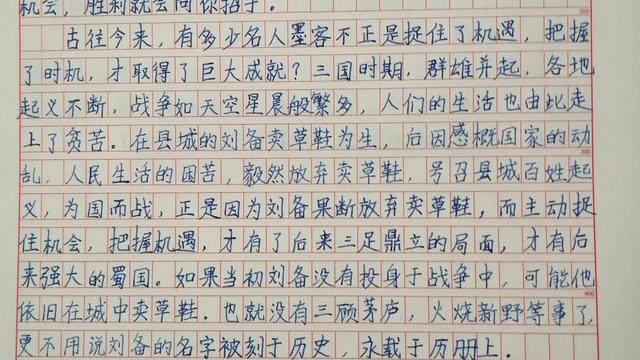 机会，胜利就会向你招手。
200
古往今来，有多少名人墨客不正是捉住了机遇，把握
了时机，才取得了巨大成就？三国时期，群雄并起，各地
起义不断，战争如天空星晨般繁多，人们的生活也由此走
上了贫苦。在县城的刘备卖草鞋为生，后因感概国家的动
300
乱，人民生活的困苦，毅然放弃卖草鞋，号召县城百姓起
义，为国而战，正是因为刘备果断放弃卖草鞋，而主动捉
住机会，把握机遇，才有了后来三足鼎立的局面，才有后
来强大的蜀国。如果当初刘备没有投身于战争中，可能他
400
依旧在城中卖草鞋．也就没有三顾茅庐，火烧新野等事了，
更不用说刘备的名字被刻于历史，永载于历册上．